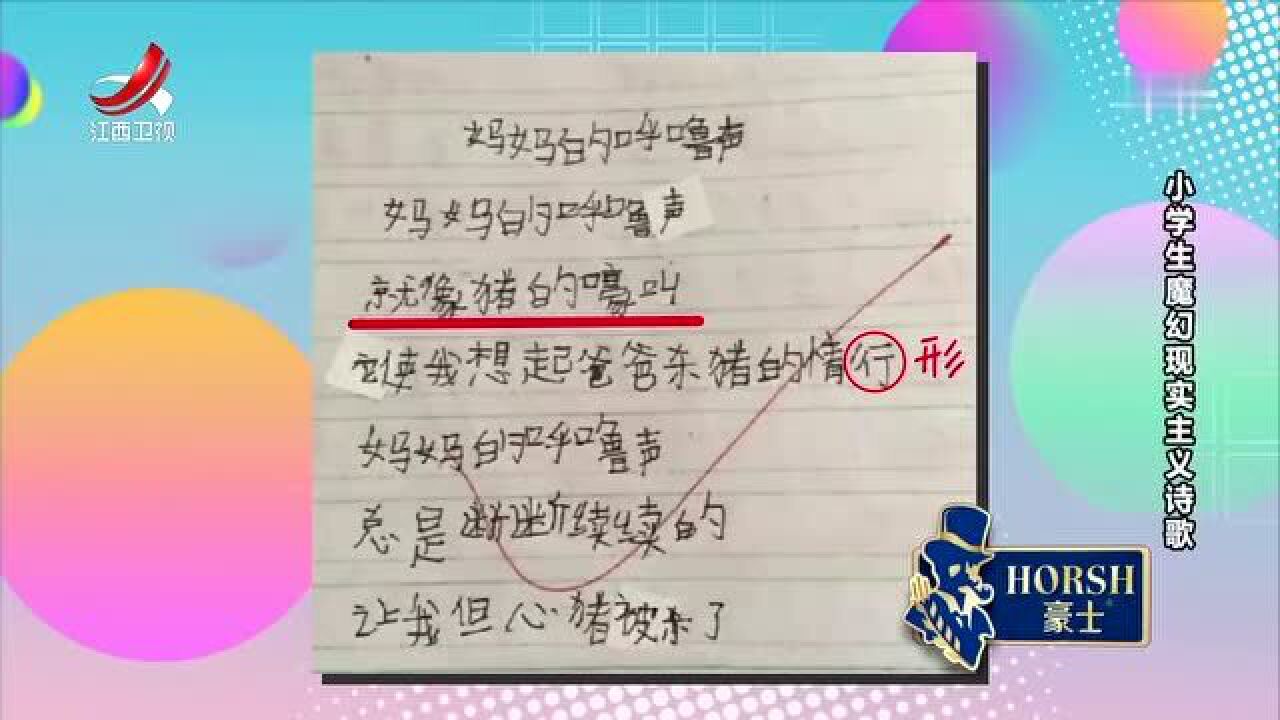 江西卫视
妈妈的呼噜声
妈妈的呼噜声
就像猪的嚎叫
它使我想起爸爸杀猪的情行 形
妈妈的呼噜声
总是断断续续的
让我但心猪被杀了
小学生魔幻现实主义诗歌
HORSH
豪士